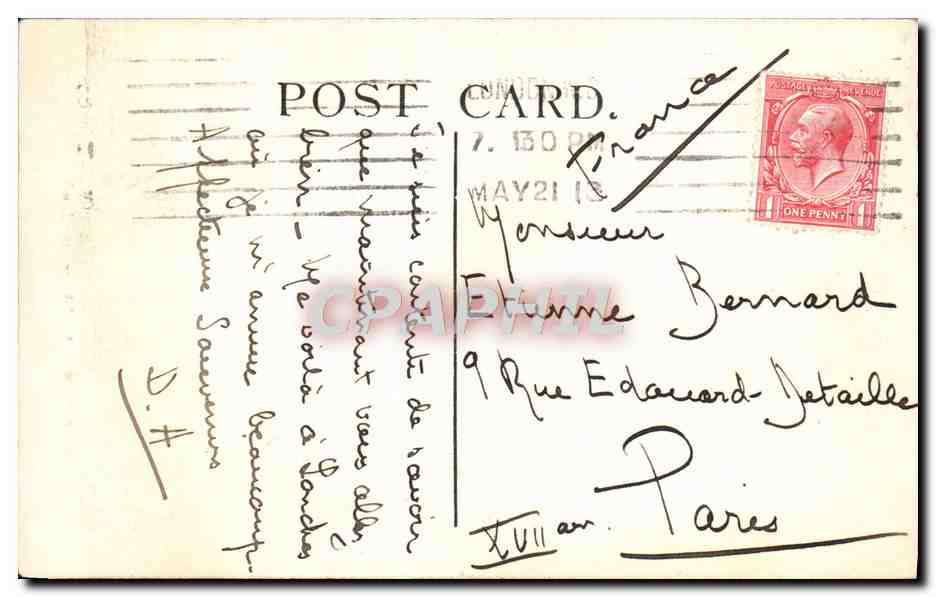 POST CARD.
7. 130 PM
MAY 21 13
POSTAGE REVENUE
ONE PENNY
France
Monsieur
Etienne Bernard
9 Rue Edouard-Detaille
Paris
XVII arr.
Je suis contente de savoir
que maintenant vous allez
bien - Me voilà à Londres
où je m'amuse beaucoup.
Affectueux Souvenirs
D. H
CPAPHIL